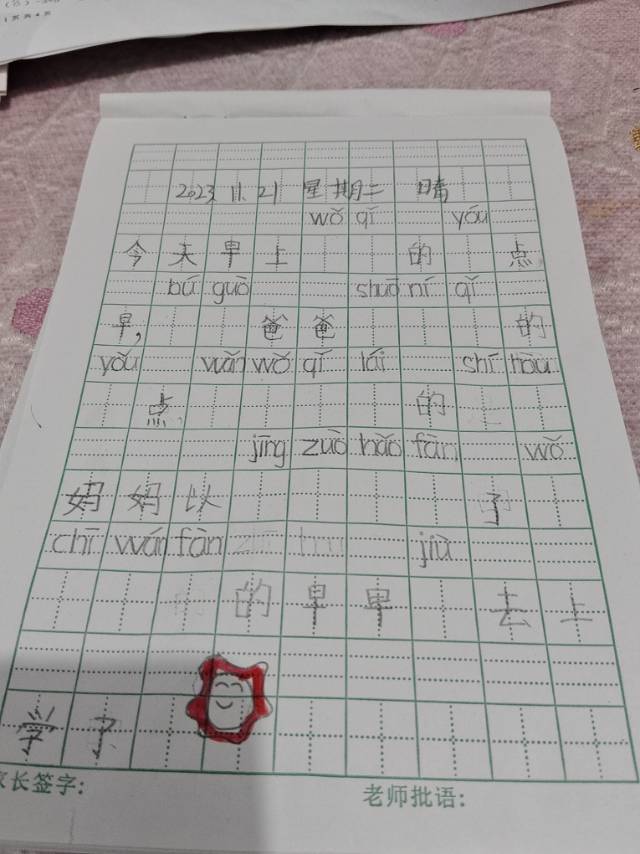 1页共4页
2023. 11. 21 星期二 晴
wǒ qǐ yóu
今天早上的点
bú guò shuō ní qǐ
早,爸爸的
yǒu wǎn wǒ qǐ lái shí hòu
点的上
jīng zuò hǎo fàn wǒ
妈妈以了
chī wán fàn jiù
的早早去上
学了
家长签字: 老师批语: